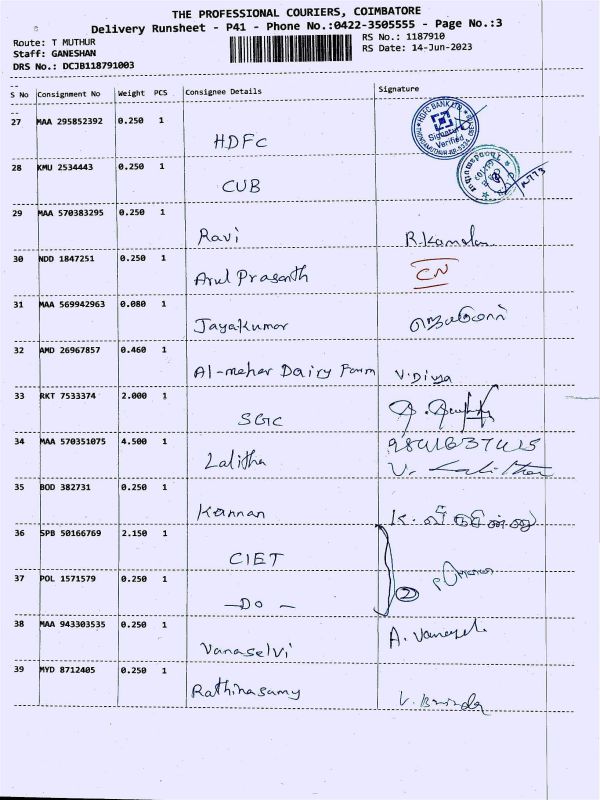 THE PROFESSIONAL COURIERS, COIMBATORE
Delivery Runsheet - P41 - Phone No.:0422-3505555 - Page No.:3
Route: T MUTHUR
Staff: GANESHAN
DRS No.: DCJB118791003
RS No.: 1187910
RS Date: 14-Jun-2023
S No Consignment No Weight PCS Consignee Details Signature
27 MAA 295852392 0.250 1
HDFC
HDFC BANK LTD
Signature Verified
28 KMU 2534443 0.250 1
CUB
29 MAA 570383295 0.250 1
Ravi R.Kamala
30 NDD 1847251 0.250 1
Arul Prasanth CN
31 MAA 569942963 0.080 1
Jayakumar
32 AMD 26967857 0.460 1
Al-meher Dairy Farm V.Divya
33 RKT 7533374 2.000 1
SGC
34 MAA 570351075 4.500 1
9841637415
Lalitha V. Lalitha
35 BOD 382731 0.250 1
Kannan K.
36 SPB 50166769 2.150 1
CIET
37 POL 1571579 0.250 1
2
- DO -
38 MAA 943303535 0.250 1
Vanaselvi A. Vanasel
39 MYD 8712405 0.250 1
Rathinasamy V. Brinda